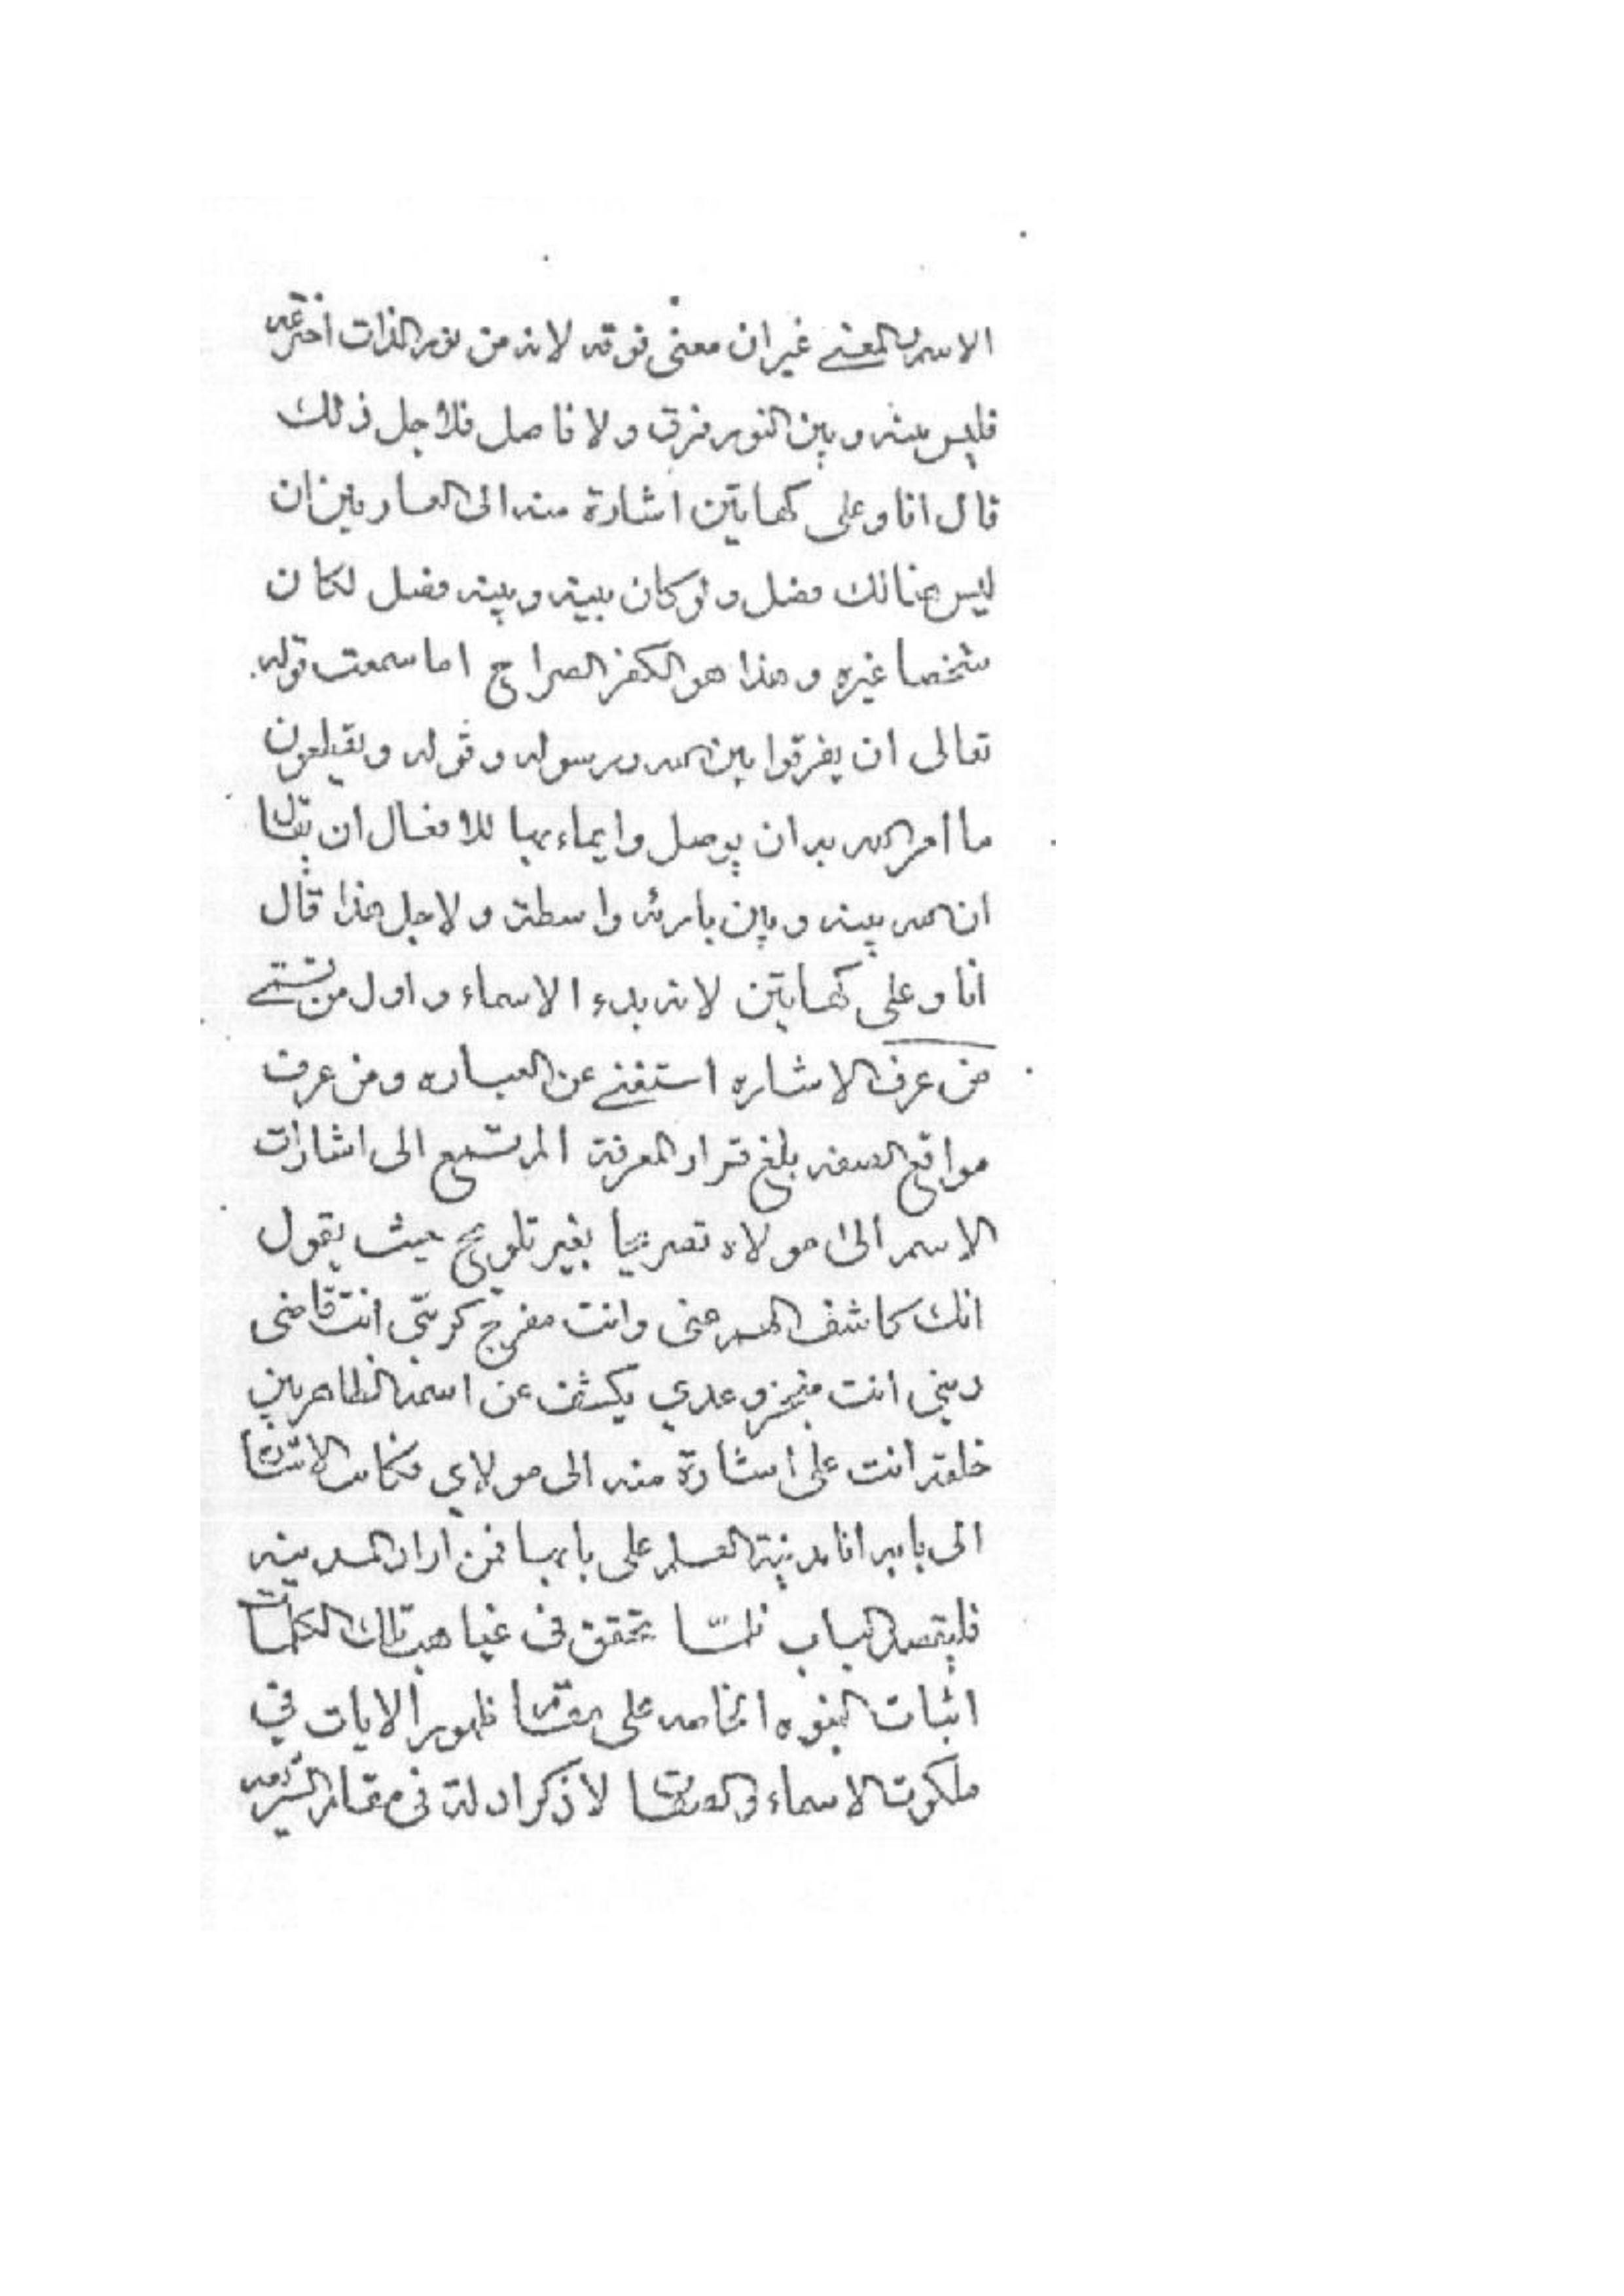 الاسم المعنى غير ان معنى فوقه لانه من نور الذات اخترعه
فليس بينه و بين النور فرق ولا فاصل فلأجل ذلك
قال انا وعلى كهاتين اشارة منه الى العارفين ان
ليس هنالك فصل ولو كان بينه وبينه فصل لكان
شخصا غيره و هذا هو الكفر الصراح اما سمعت قوله
تعالى ان يفرقوا بين الله ورسوله وقوله ويقطعون
ما امر الله به ان يوصل وايماء بها للافعال ان يقال
ان الله بينه و بين بارئه واسطة ولاجل هذا قال
انا وعلى كهاتين لانه بدء الاسماء و اول من تسمى
من عرف الاشاره استغنى عن العباره ومن عرف
مواقع الصفه بلغ قرار المعرفة الم تسمع الى اشارات
الاسم الى مولاه تصريحا بغير تلويح حيث يقول
انك كاشف الهم عنى وانت مفرج كربتى انت قاضى
دينى انت منجز وعدي يكشف عن اسمه الظاهر بين
خلقه انت على اشارة منه الى مولاي فكانت الاشارة
الى بابه انا مدينة العلم على بابها فمن اراد المدينه
فليقصد الباب فلمّا تحقق فى غياهب تلك الكلمات
اثبات النبوه الخاصه على مقام ظهور الايات في
ملكوت الاسماء والصفات لاذكر ادلة فى مقام